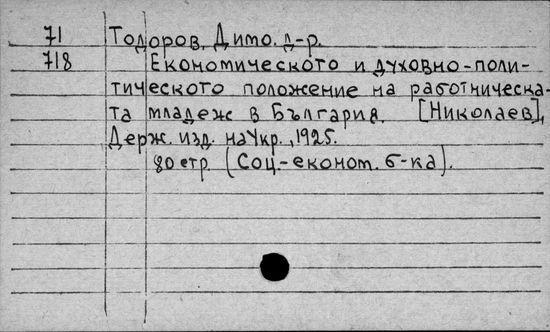 71 Тодоров, Димо. д-р.
718 Економическото и духовно-поли-
тическото положение на работническа-
та младеж в България. [Николаев],
Держ. изд. на Укр., 1925.
80 стр. (Соц.-економ. б-ка).